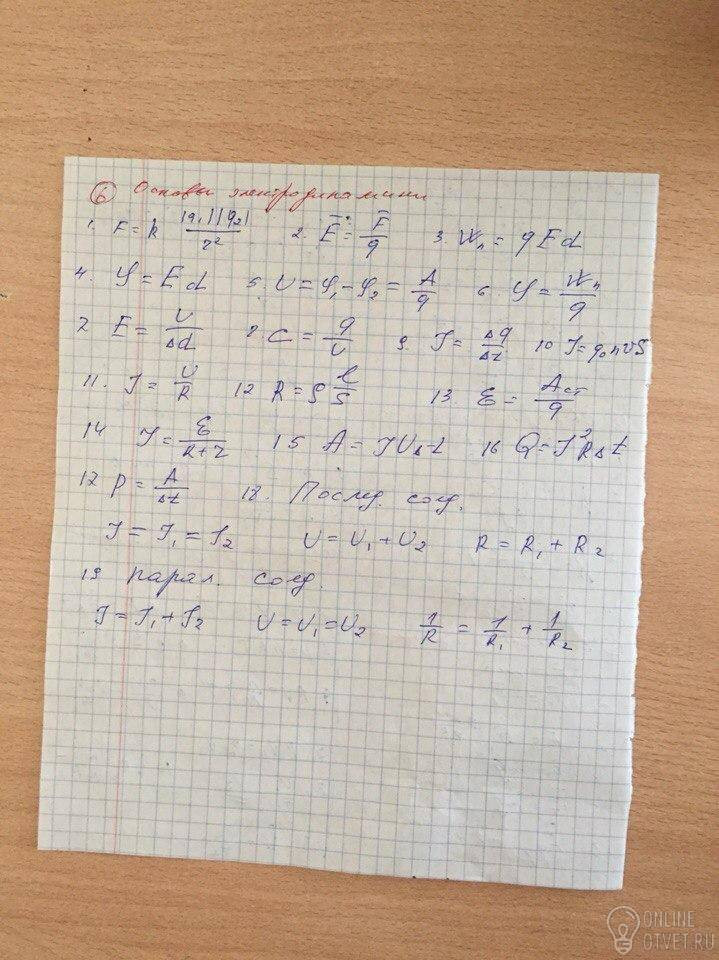 6 Основы электродинамики
1. F = k |q₁||q₂| / r² 2. E⃗ = F⃗/q 3. Wₙ = qEd
4. φ = Ed 5. U = φ₁ - φ₂ = A/q 6. φ = Wₙ/q
7. E = U/Δd 8. C = q/U 9. I = Δq/Δt 10 I = q₀nvS
11. I = U/R 12 R = ρ l/S 13. ℰ = Aст/q
14 I = ℰ/(R+r) 15 A = IUΔt 16 Q = I²RΔt
17 P = A/Δt 18. Послед. соед.
I = I₁ = I₂ U = U₁ + U₂ R = R₁ + R₂
19 парал. соед.
I = I₁ + I₂ U = U₁ = U₂ 1/R = 1/R₁ + 1/R₂
ONLINE
OTVET.RU